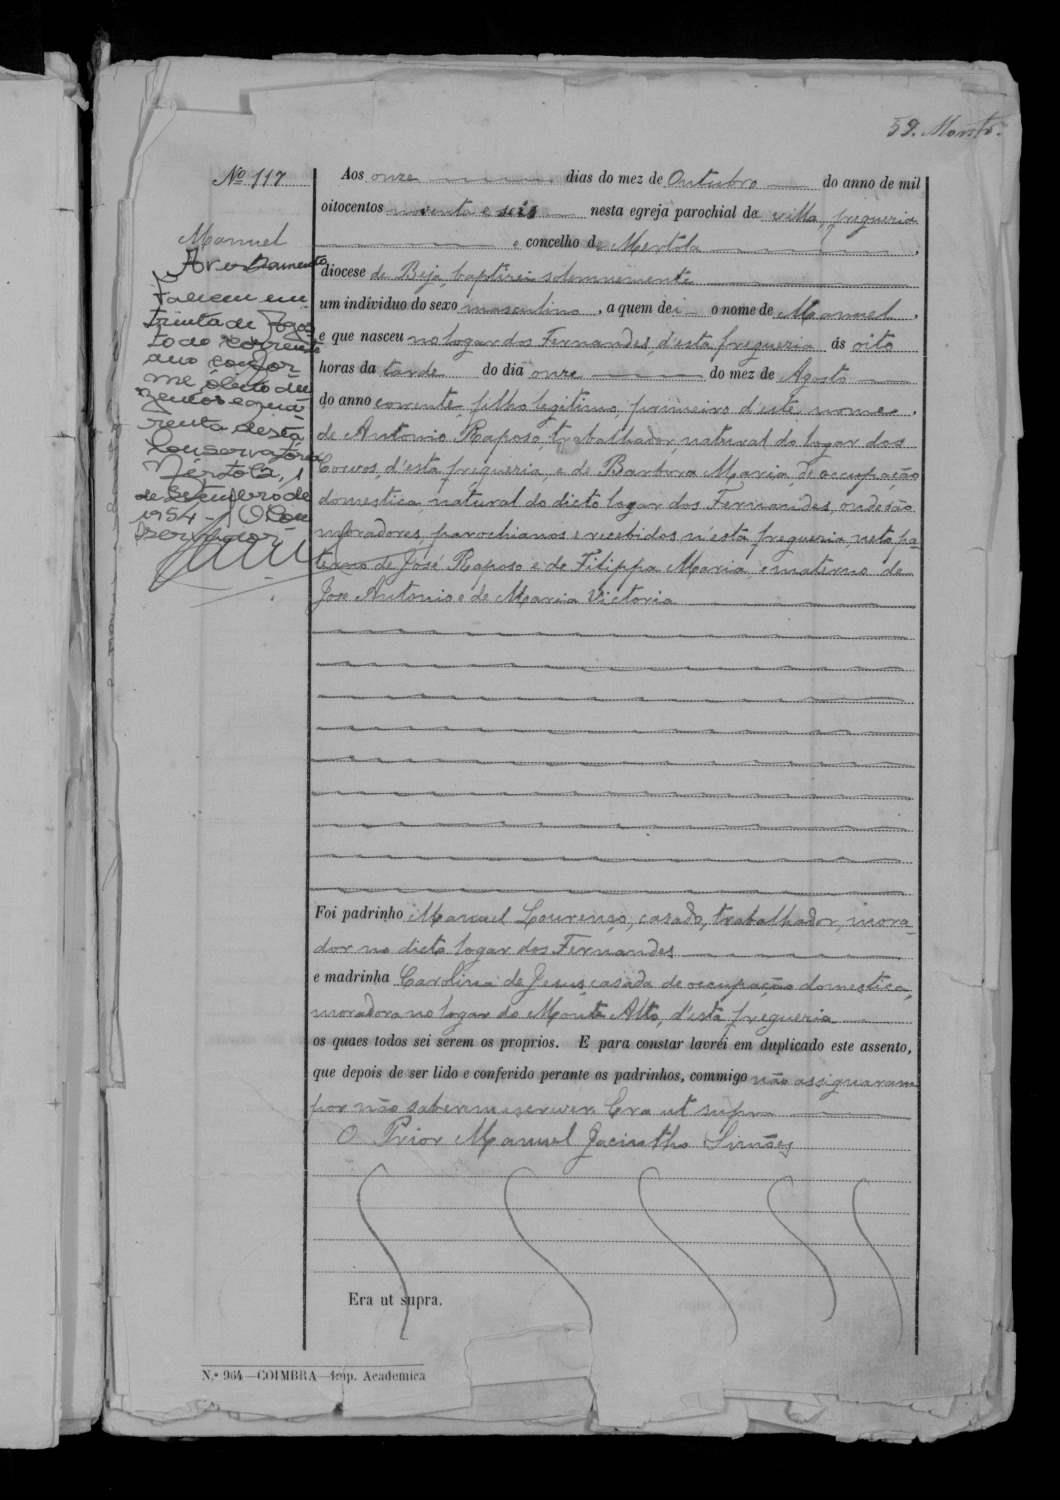 59.
Nº 117
Manuel
Averbamento
Faleceu em
trinta de Agos
to do corrente
ano confor
me obito du
zentos e qua
renta desta
Conservatória
Mertola, 1
de Setembro de
1954 - O Con
servador
Aos onze dias do mez de Outubro do anno de mil
oitocentos noventa e seis nesta egreja parochial da villa, freguezia
e concelho de Mertola
diocese de Beja, baptisei solemnemente
um individuo do sexo masculino, a quem dei o nome de Manuel,
e que nasceu no logar dos Fernandes, d'esta freguezia ás oito
horas da tarde do dia onze do mez de Agosto
do anno corrente, filho legitimo, primeiro d'este nome,
de Antonio Raposo, trabalhador, natural do logar dos
Corvos, d'esta freguezia, e de Barbara Maria, de occupação
domestica, natural do dicto logar dos Fernandes, onde são
moradores, parochianos e recebidos n'esta freguezia, neto pa-
terno de José Raposo e de Filippa Maria, e materno de
José Antonio e de Maria Victoria
Foi padrinho Manuel Lourenço, casado, trabalhador, mora-
dor no dicto logar dos Fernandes
e madrinha Carolina de Jesus, casada de occupação domestica,
moradora no logar do Monte Alto, d'esta freguezia
os quaes todos sei serem os proprios. E para constar lavrei em duplicado este assento,
que depois de ser lido e conferido perante os padrinhos, commigo não assignaram
por não saberem escrever Era ut supra
O Prior Manuel Jacintho Simões
Era ut supra.
N.º 964—COIMBRA—Imp. Academica